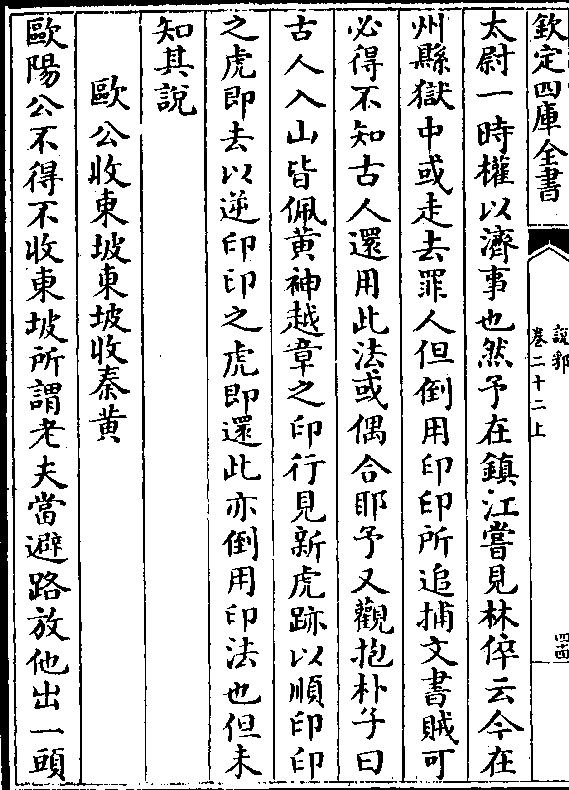 欽定四庫全書
説郛
卷二十二上
四
太尉一時權以濟事也然予在鎮江嘗見林倅云今在
州縣獄中或走去罪人但倒用印印所追捕文書賊可
必得不知古人還用此法或偶合耶予又觀抱朴子曰
古人入山皆佩黄神越章之印行見新虎跡以順印印
之虎即去以逆印印之虎即還此亦倒用印法也但未
知其説
歐公收東坡東坡收秦黄
歐陽公不得不收東坡所謂老夫當避路放他出一頭